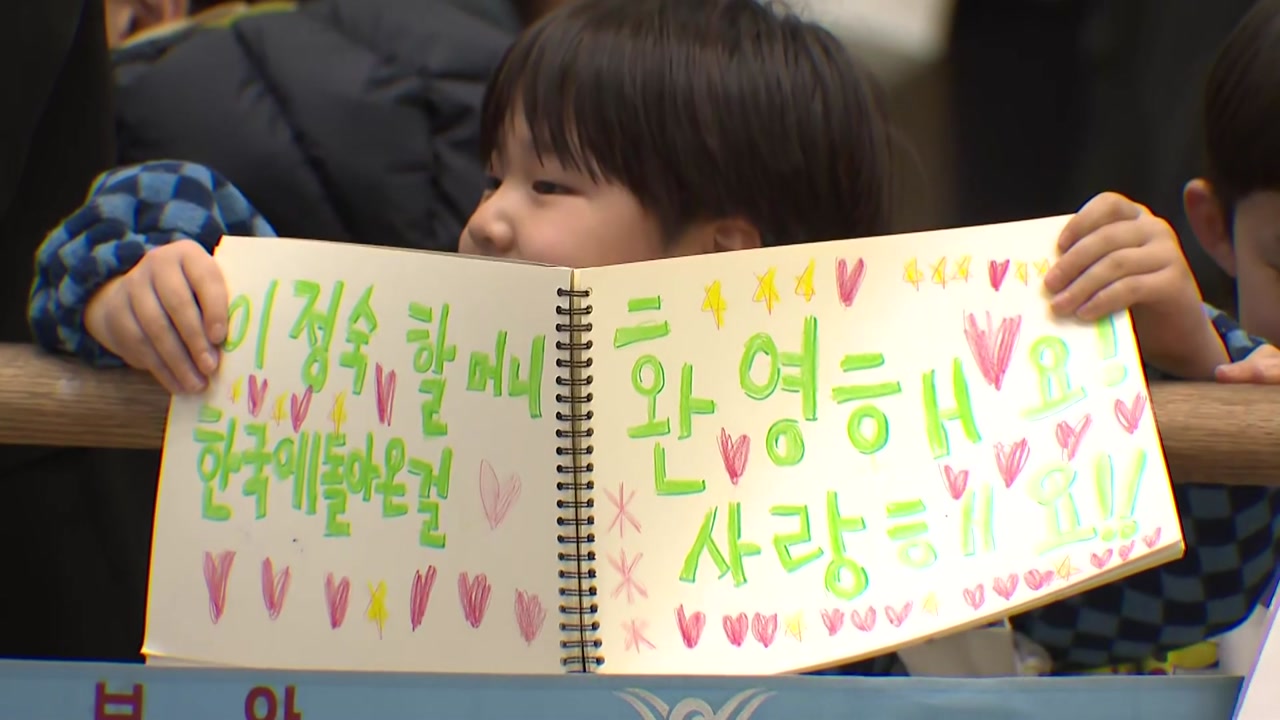 이정숙 할머니
한국에돌아온걸
환영해요!
사랑해요!!
보안